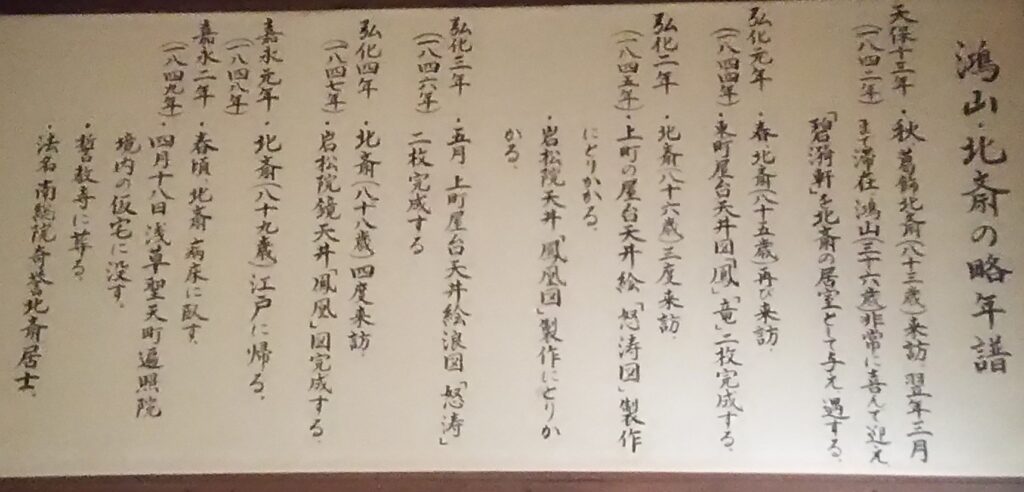 鴻山・北斎の略年譜
天保十三年・秋 葛飾北斎(八十三歳)来訪 翌年三月
(一八四二年) まで滞在 鴻山(三十六歳)非常に喜んで迎え
「碧漪軒」を北斎の居室として与え遇する。
弘化元年・春、北斎(八十五歳)再び来訪
(一八四四年)・東町屋台天井図「鳳」「竜」二枚完成する。
弘化二年・北斎(八十六歳)三度来訪
(一八四五年)・上町の屋台天井絵「怒涛図」製作
にとりかかる。
・岩松院天井「鳳凰図」製作にとりか
かる。
弘化三年・五月 上町屋台天井絵浪図「怒涛」
(一八四六年) 二枚完成する
弘化四年・北斎(八十八歳)四度来訪
(一八四七年)・岩松院鏡天井「鳳凰」図完成する。
嘉永元年・北斎(八十九歳)江戸に帰る。
(一八四八年)
嘉永二年・春頃 北斎 病床に臥す。
(一八四九年)・四月十八日浅草聖天町遍照院
境内の仮宅に没す。
・誓教寺に葬る。
・法名 南総院奇誉北斎居士。